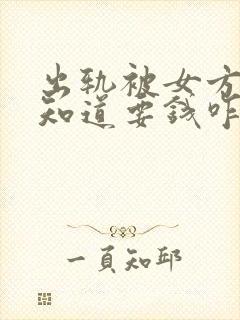 出轨被女方
知道要钱咋
一頁知邱